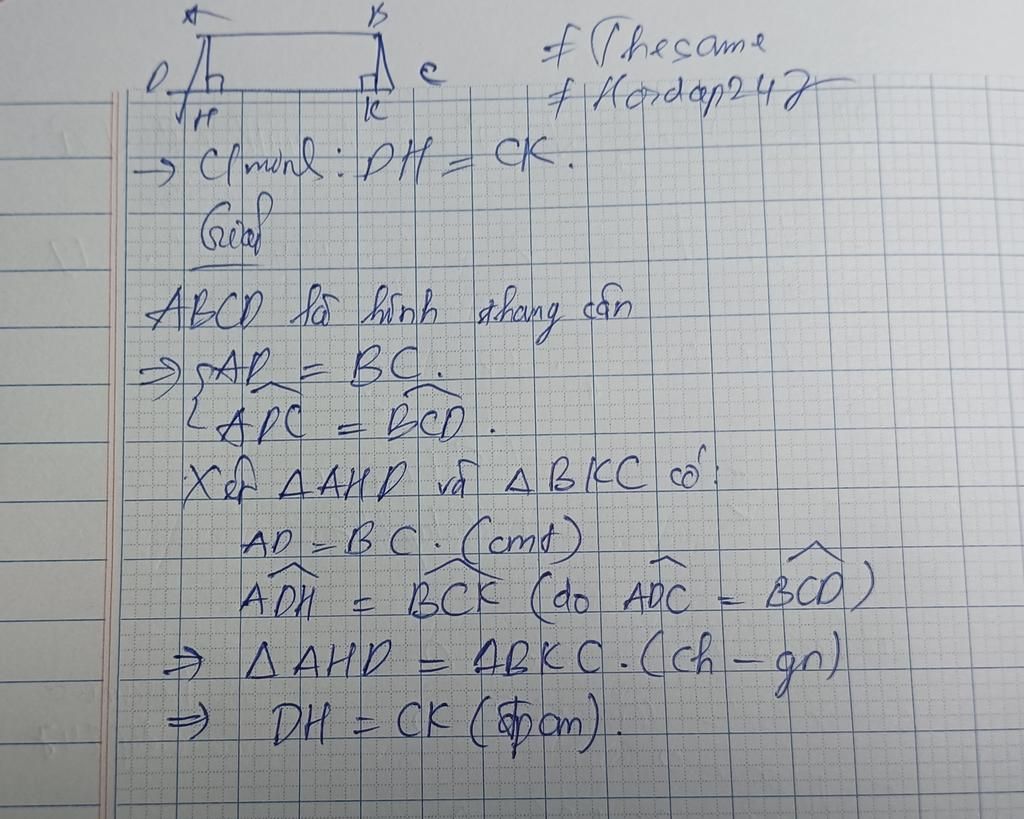 A B
D H K C
# Thesame
# Hoidap247
→ C/minh: DH = CK.
Giải
ABCD là hình thang cân
⇒ { AD = BC.
{ \widehat{ADC} = \widehat{BCD}.
Xét ΔAHD và ΔBKC có:
AD = BC. (cmt)
\widehat{ADH} = \widehat{BCK} (do \widehat{ADC} = \widehat{BCD})
⇒ ΔAHD = ΔBKC. (ch - gn)
⇒ DH = CK (đpcm).